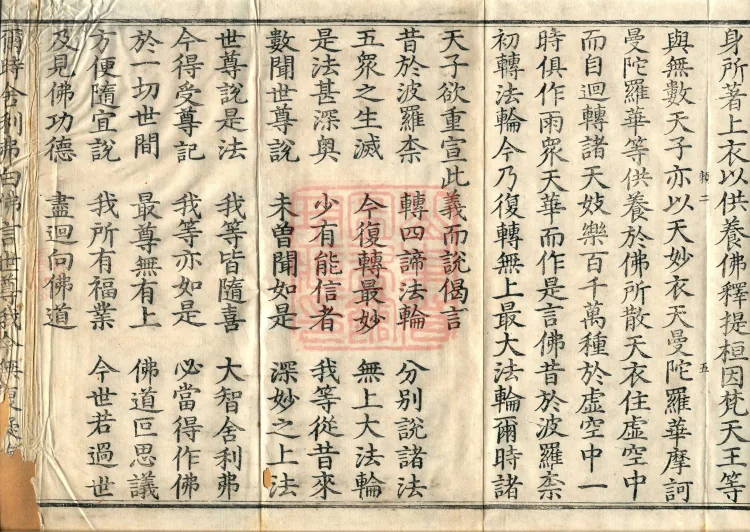 身所著上衣以供養佛釋提桓因梵天王等
與無數天子亦以天妙衣天曼陀羅華摩訶
曼陀羅華等供養於佛所散天衣住虛空中
而自迴轉諸天妓樂百千萬種於虛空中一
時俱作雨眾天華而作是言佛昔於波羅柰
初轉法輪今乃復轉無上最大法輪爾時諸
天子欲重宣此義而說偈言
昔於波羅柰 轉四諦法輪 分別說諸法
五眾之生滅 今復轉最妙 無上大法輪
是法甚深奧 少有能信者 我等從昔來
數聞世尊說 未曾聞如是 深妙之上法
世尊說是法 我等皆隨喜 大智舍利弗
今得受尊記 我等亦如是 必當得作佛
於一切世間 最尊無有上 佛道叵思議
方便隨宜說 我所有福業 今世若過世
及見佛功德 盡迴向佛道
爾時舍利弗白佛言世尊我今無復疑
二
五